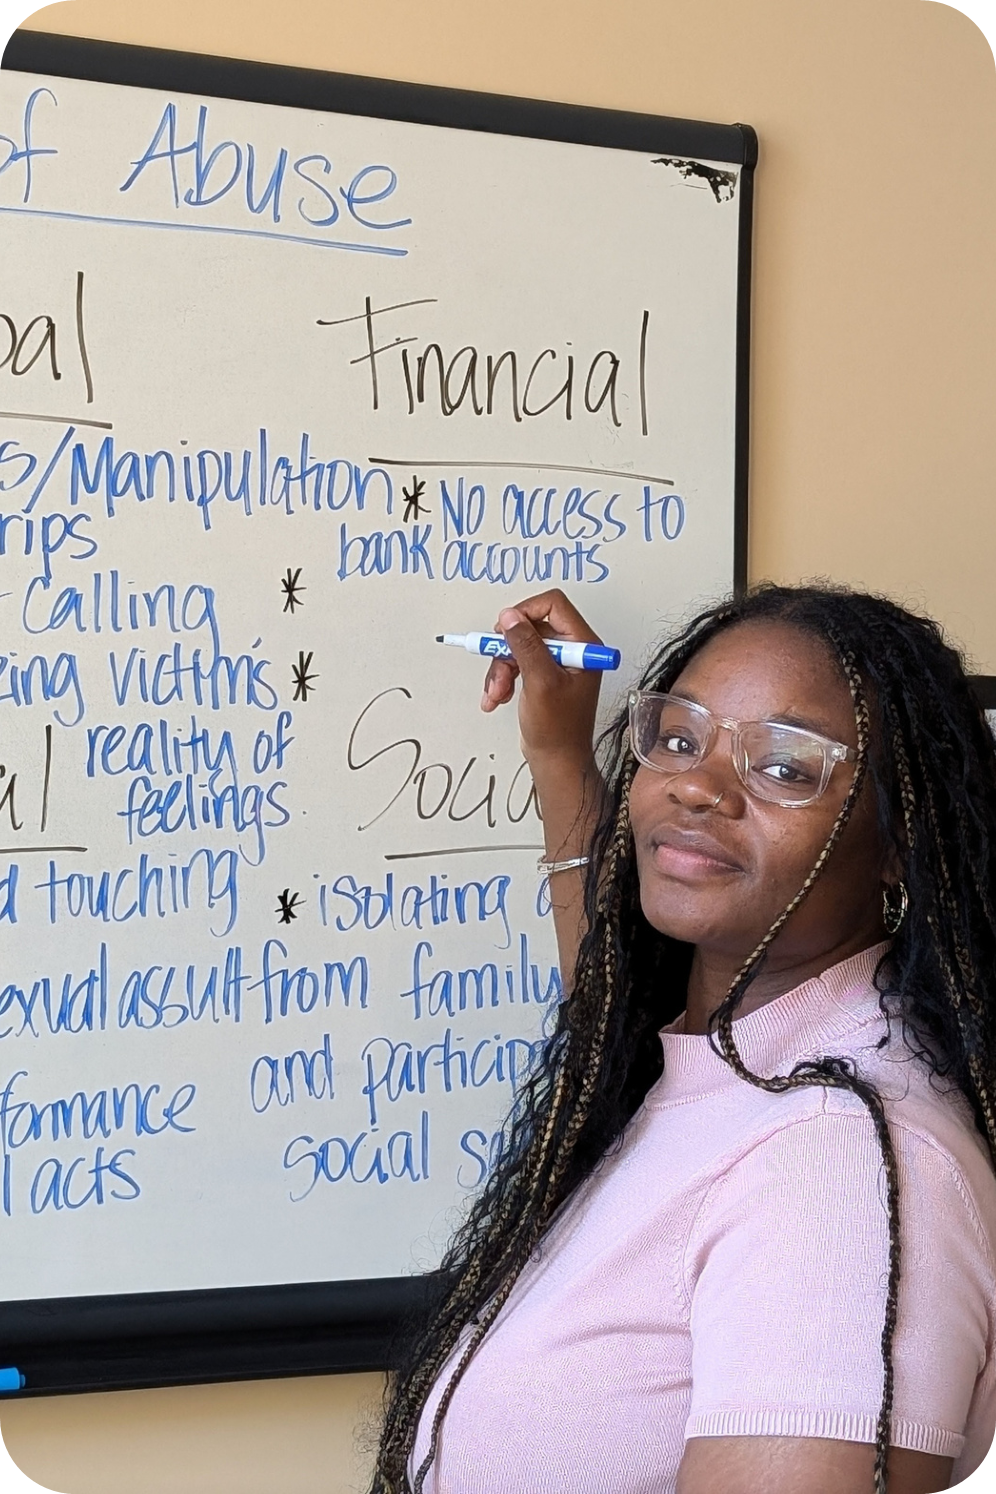 of Abuse
Financial
s/Manipulation
rips
* No access to
bank accounts
calling
*
zing victim's
*
reality of
feelings.
Social
d touching
* isolating
exual assult
from family
and particip
formance
l acts
social s
EXPO